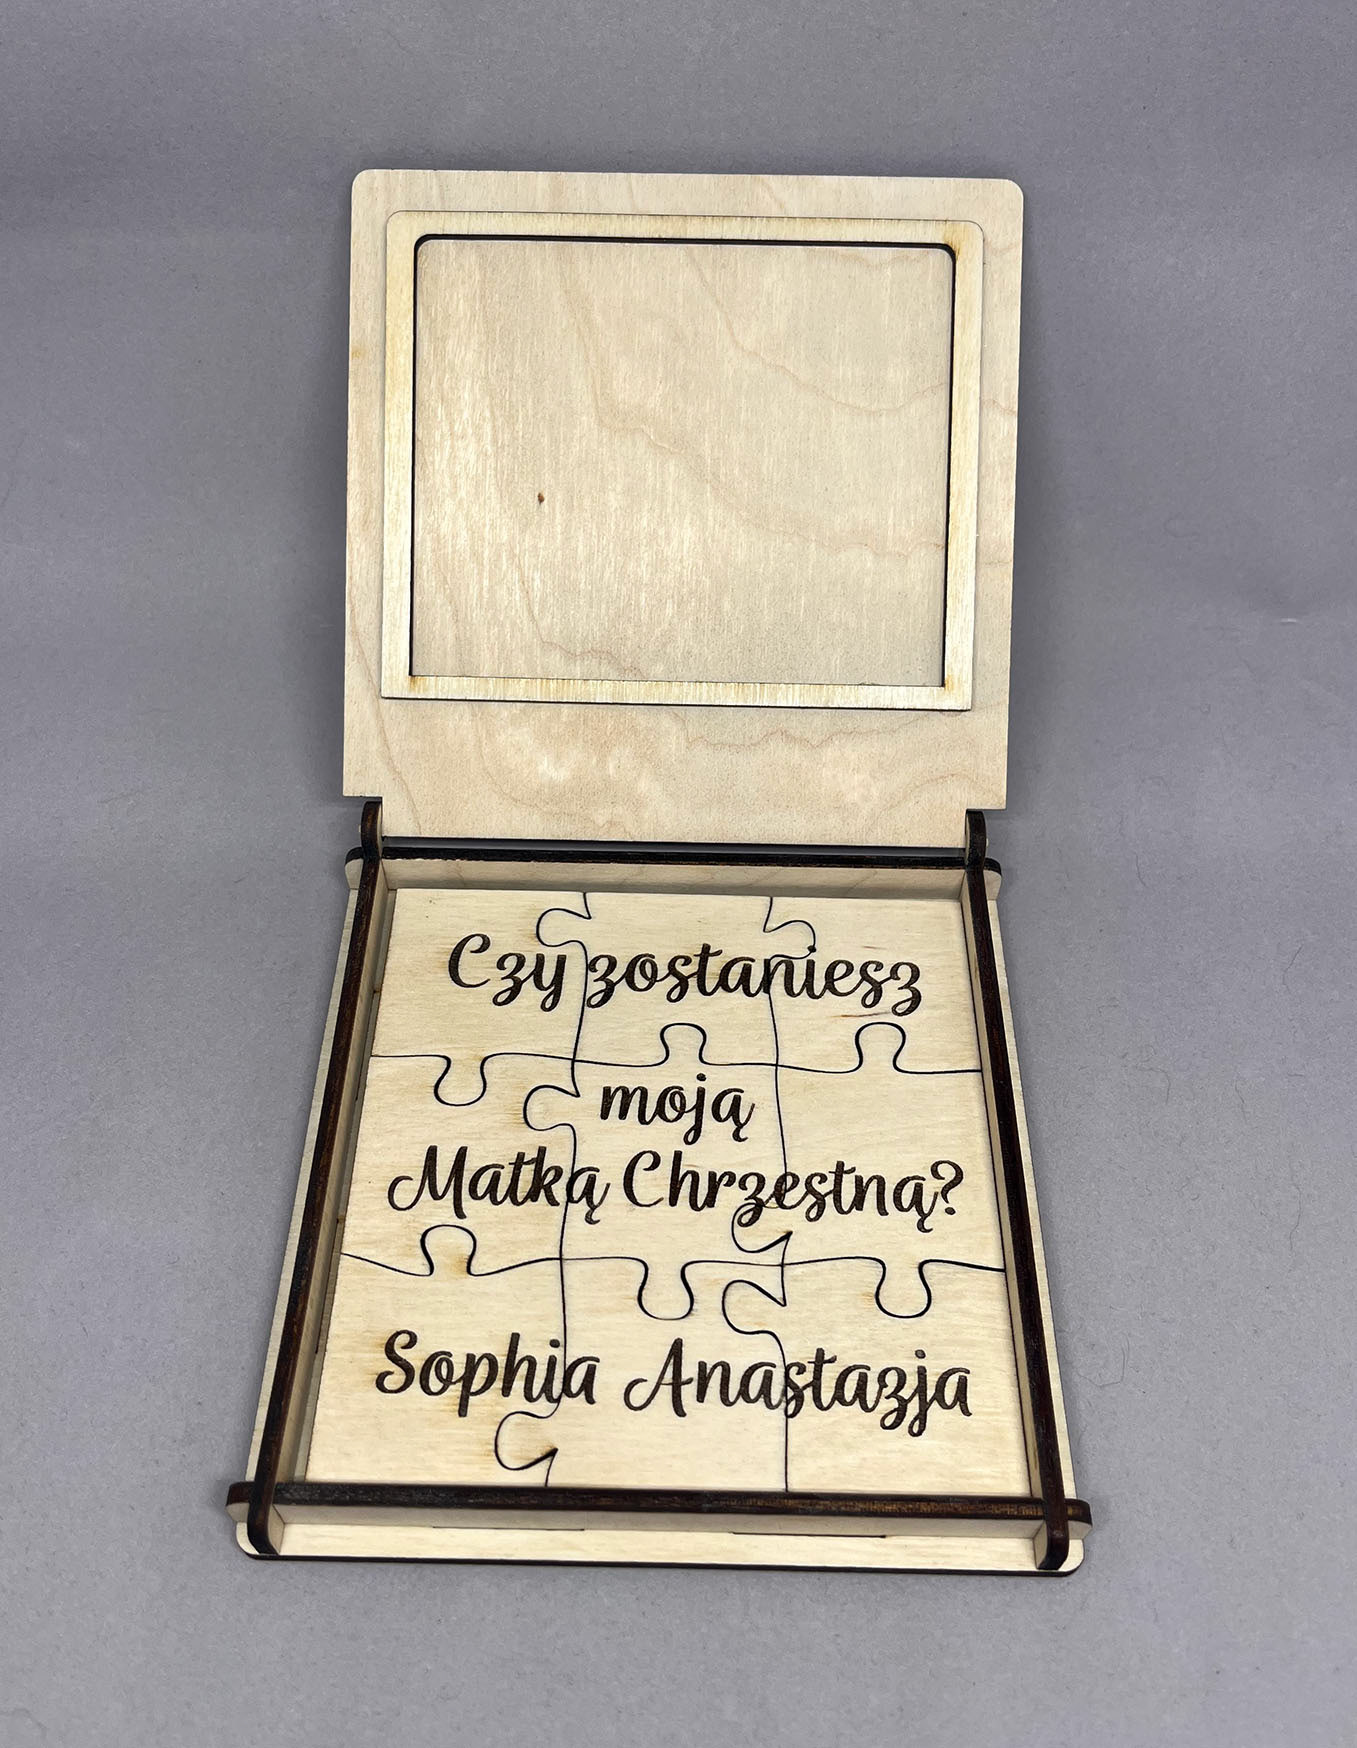 Czy zostaniesz
moją
Matką Chrzestną?
Sophia Anastazja